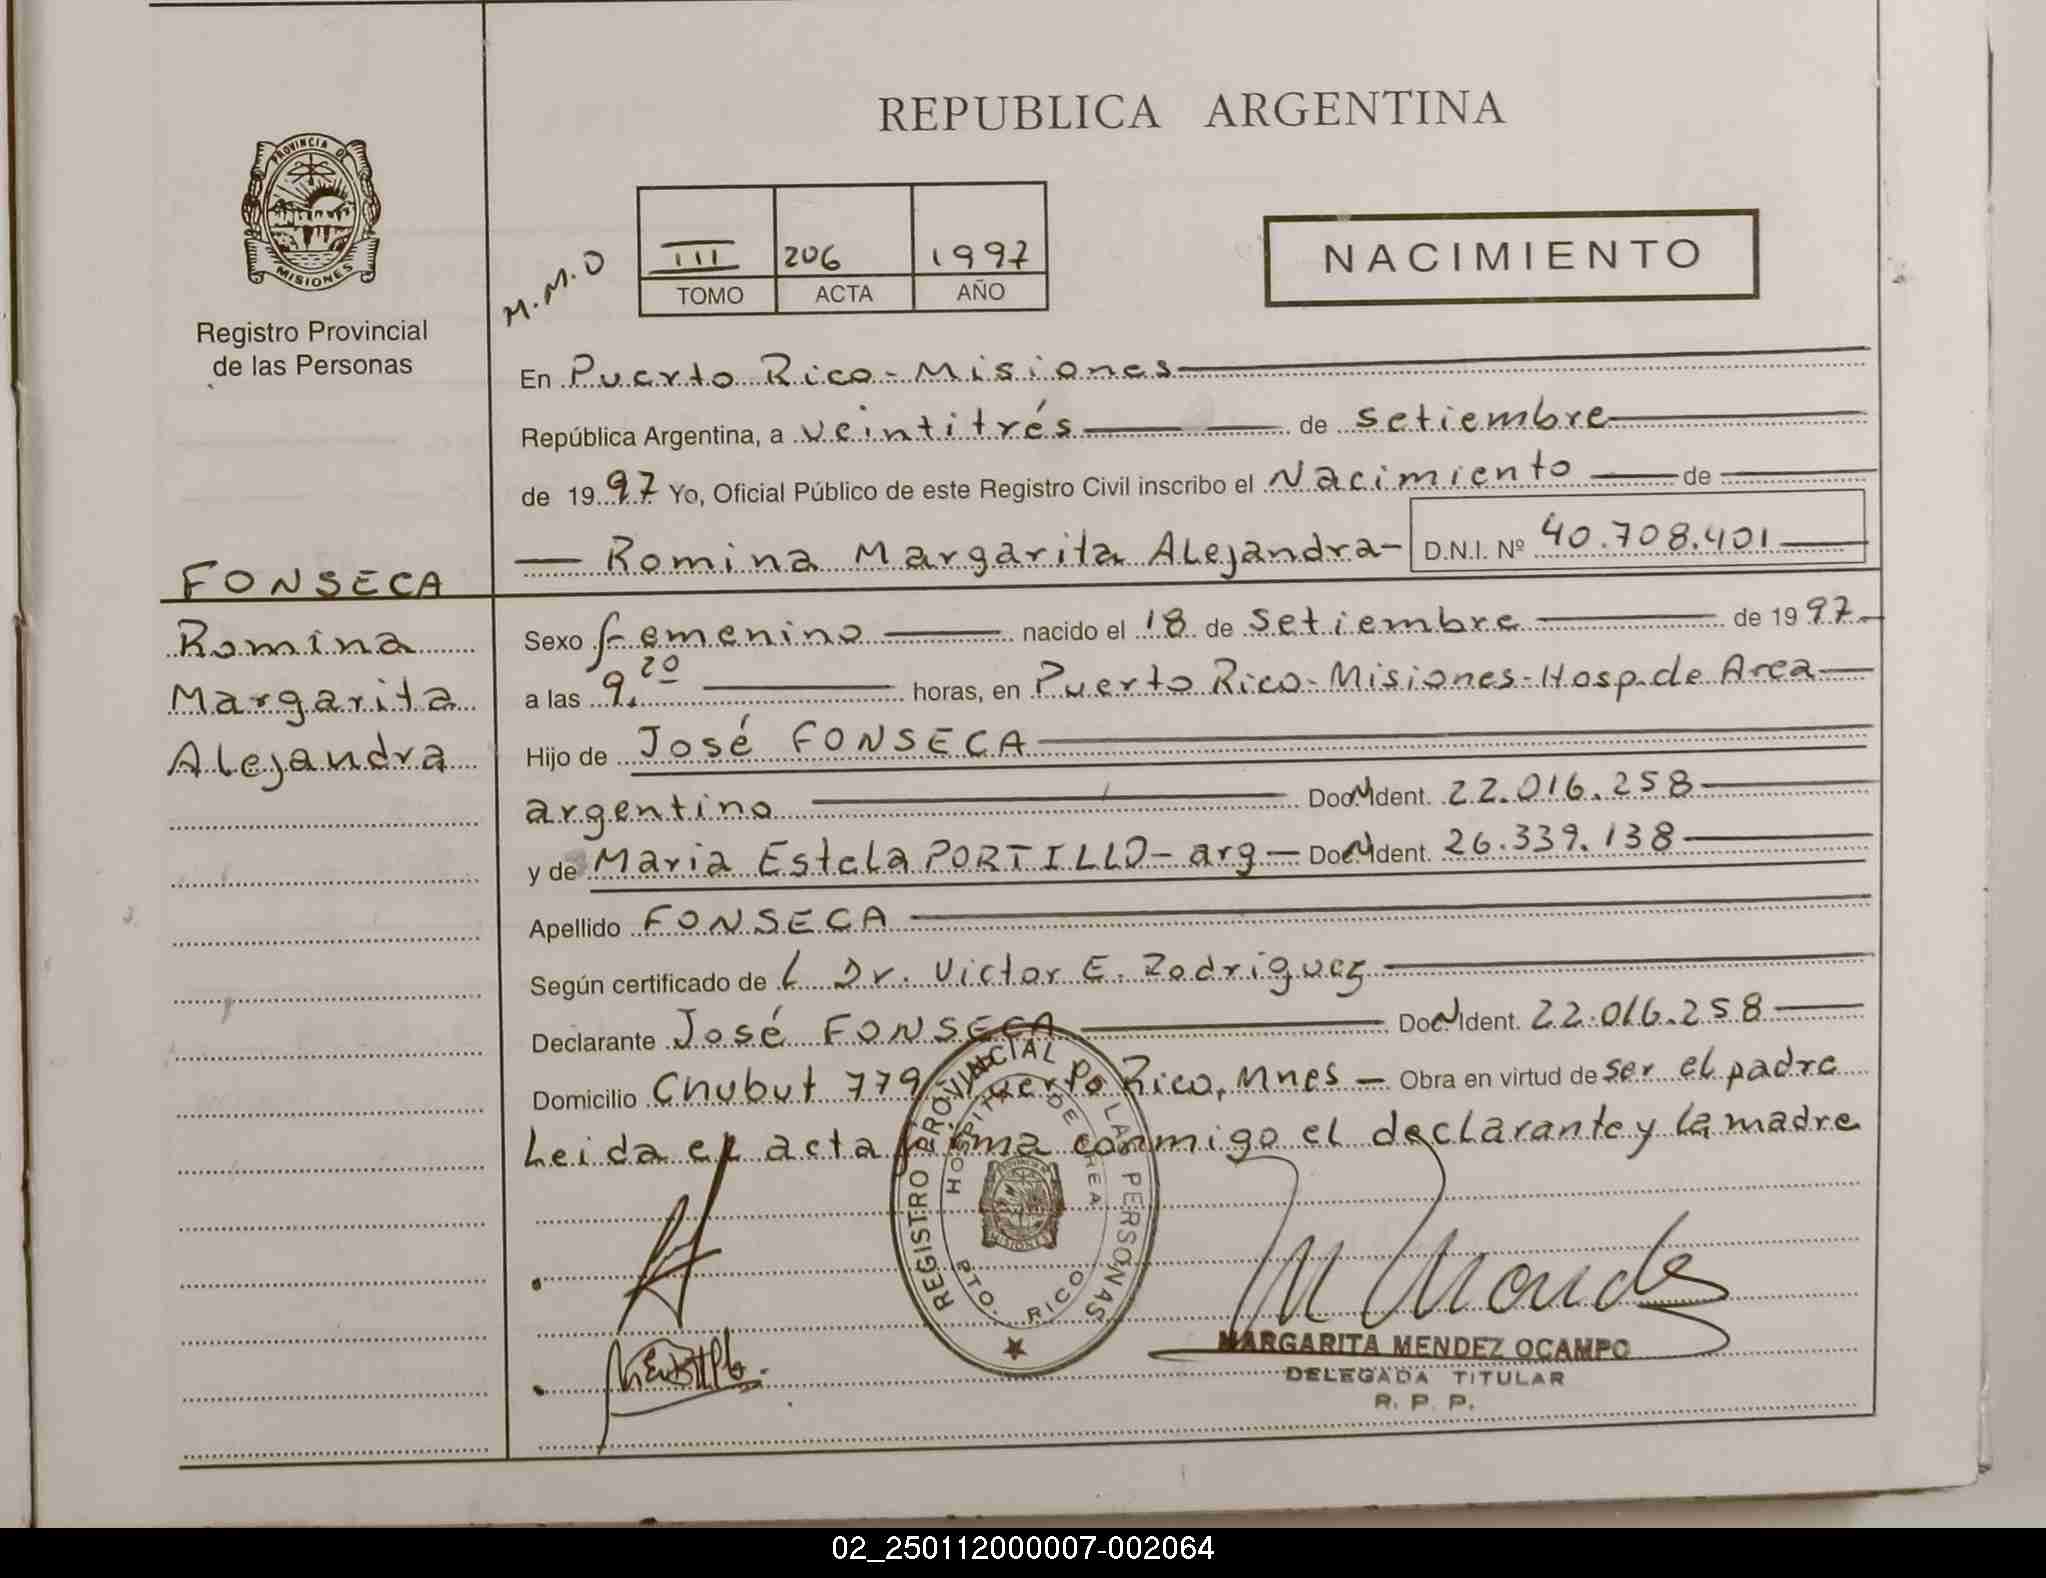 REPUBLICA ARGENTINA
PROVINCIA DE
MISIONES
Registro Provincial
de las Personas
M.M.O
III 206 1997
TOMO ACTA AÑO
NACIMIENTO
En Puerto Rico - Misiones
República Argentina, a veintitrés de setiembre
de 1997 Yo, Oficial Público de este Registro Civil inscribo el Nacimiento de
Romina Margarita Alejandra - D.N.I. Nº 40.708.401
FONSECA
Romina
Margarita
Alejandra
Sexo femenino nacido el 18 de setiembre de 1997
a las 9.20 horas, en Puerto Rico - Misiones - Hosp. de Area
Hijo de José FONSECA
argentino Doc. Ident. 22.016.258
y de Maria Estela PORTILLO - arg - Doc. Ident. 26.339.138
Apellido FONSECA
Según certificado de L Dr. Victor E. Rodriguez
Declarante José FONSECA Doc. Ident. 22.016.258
Domicilio Chubut 779 Puerto Rico, Mnes - Obra en virtud de ser el padre
Leida el acta firma conmigo el declarante y la madre
REGISTRO PROVINCIAL DE LAS PERSONAS
HOSPITAL DE AREA
PTO. RICO
MISIONES
MARGARITA MENDEZ OCAMPO
DELEGADA TITULAR
R. P. P.
02_250112000007-002064